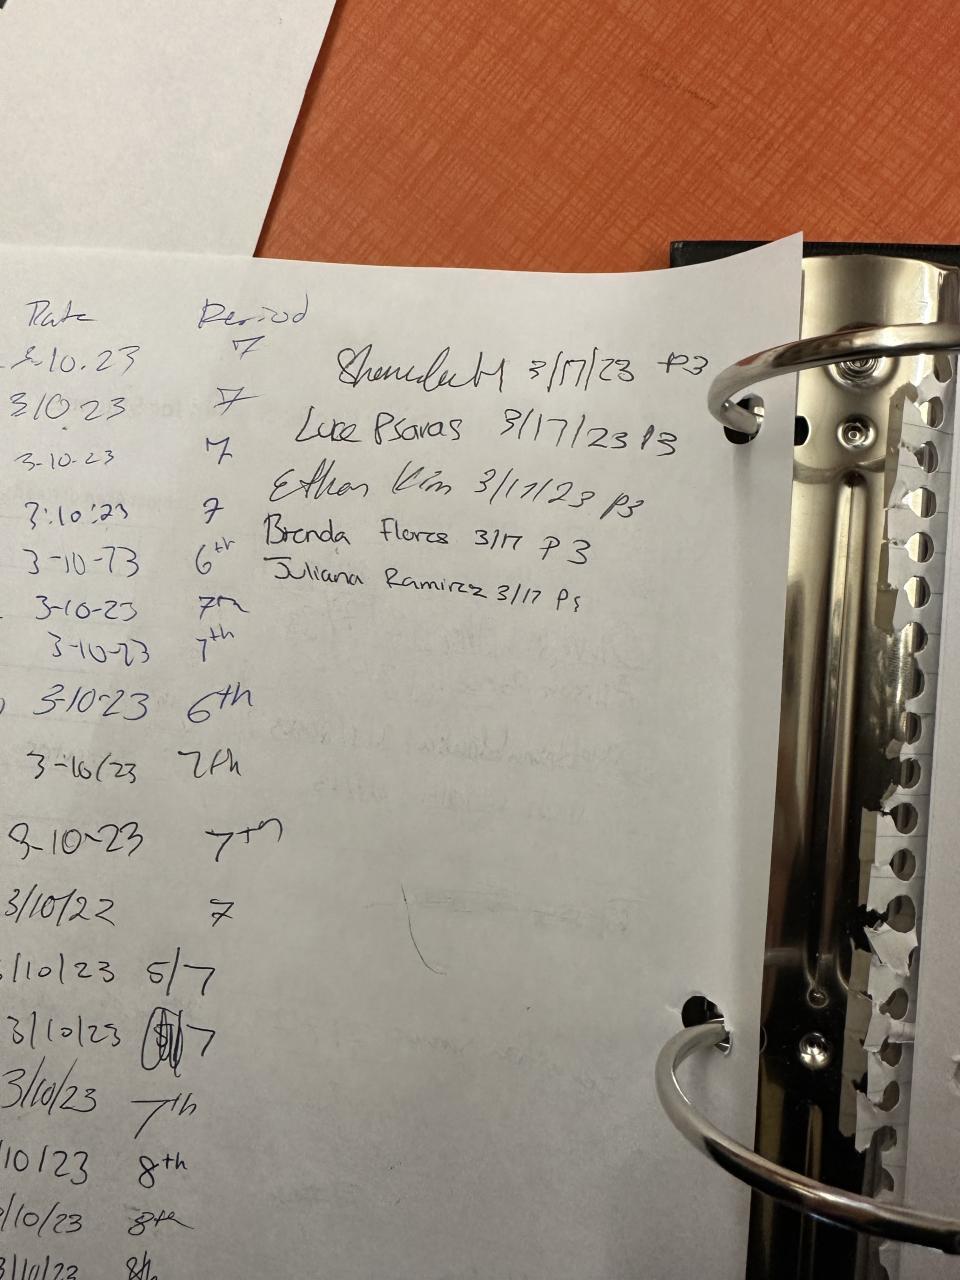 Date Period
3-10.23 7
3/17/23 P3
3 10.23 7
Luke Psaras 3/17/23 P3
3-10-23 7
Ethan Kim 3/17/23 P3
3:10:23 7
Brenda Flores 3/17 P 3
3-10-23 6th
Juliana Ramirez 3/17 P3
3-10-23 7th
3-10-23 7th
3-10-23 6th
3-10/23 7th
3-10-23 7th
3/10/22 7
/10/23 5/7
3/10/23 7
3/10/23 7th
10/23 8th
/10/23 8th
3/10/23 8th